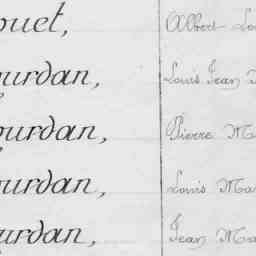 ouet, Albert Lou
ourdan, Louis Jean
ourdan, Pierre Ma
ourdan, Louis Ma
urdan, Jean Ma